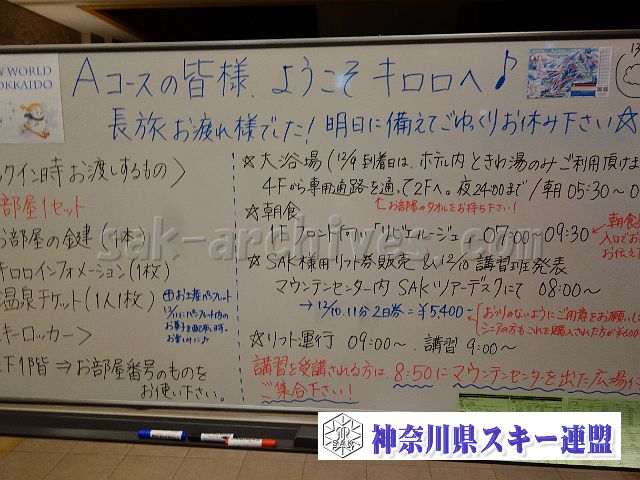 W WORLD
OKKAIDO
Aコースの皆様、ようこそ キロロへ♪
長旅お疲れ様でした！明日に備えてごゆっくりお休み下さい☆
ックイン時お渡しするもの〉
部屋1セット
お部屋の鍵(1本)
キロロインフォメーション(1枚)
温泉チケット(1人1枚)
キーロッカー〉
F1階 ⇒ お部屋番号のものを
お使い下さい。
☆大浴場(12/9到着日は、ホテル内ときわ湯のみご利用頂けま
4Fから専用通路を通って2Fへ。夜24:00まで/朝05:30～0
↑お部屋のタオルをお持ち下さい！
☆朝食
1Fフロント 07:00～09:30
朝食
入口でお
お伝え
☆SAK様用リフト券販売&12/10講習班発表
マウンテンセンター内SAKツアーデスクにて 08:00～
→12/10.11分2日券=¥5400-
おつりのないようにご用意をお願い
シニアの方もこれを購入された方が¥600
☆リフト運行 09:00～. 講習 9:00～
講習を受講される方は、8:50にマウンテンセンターを出た広場
ご集合下さい！
sak-archives.com
神奈川県スキー連盟